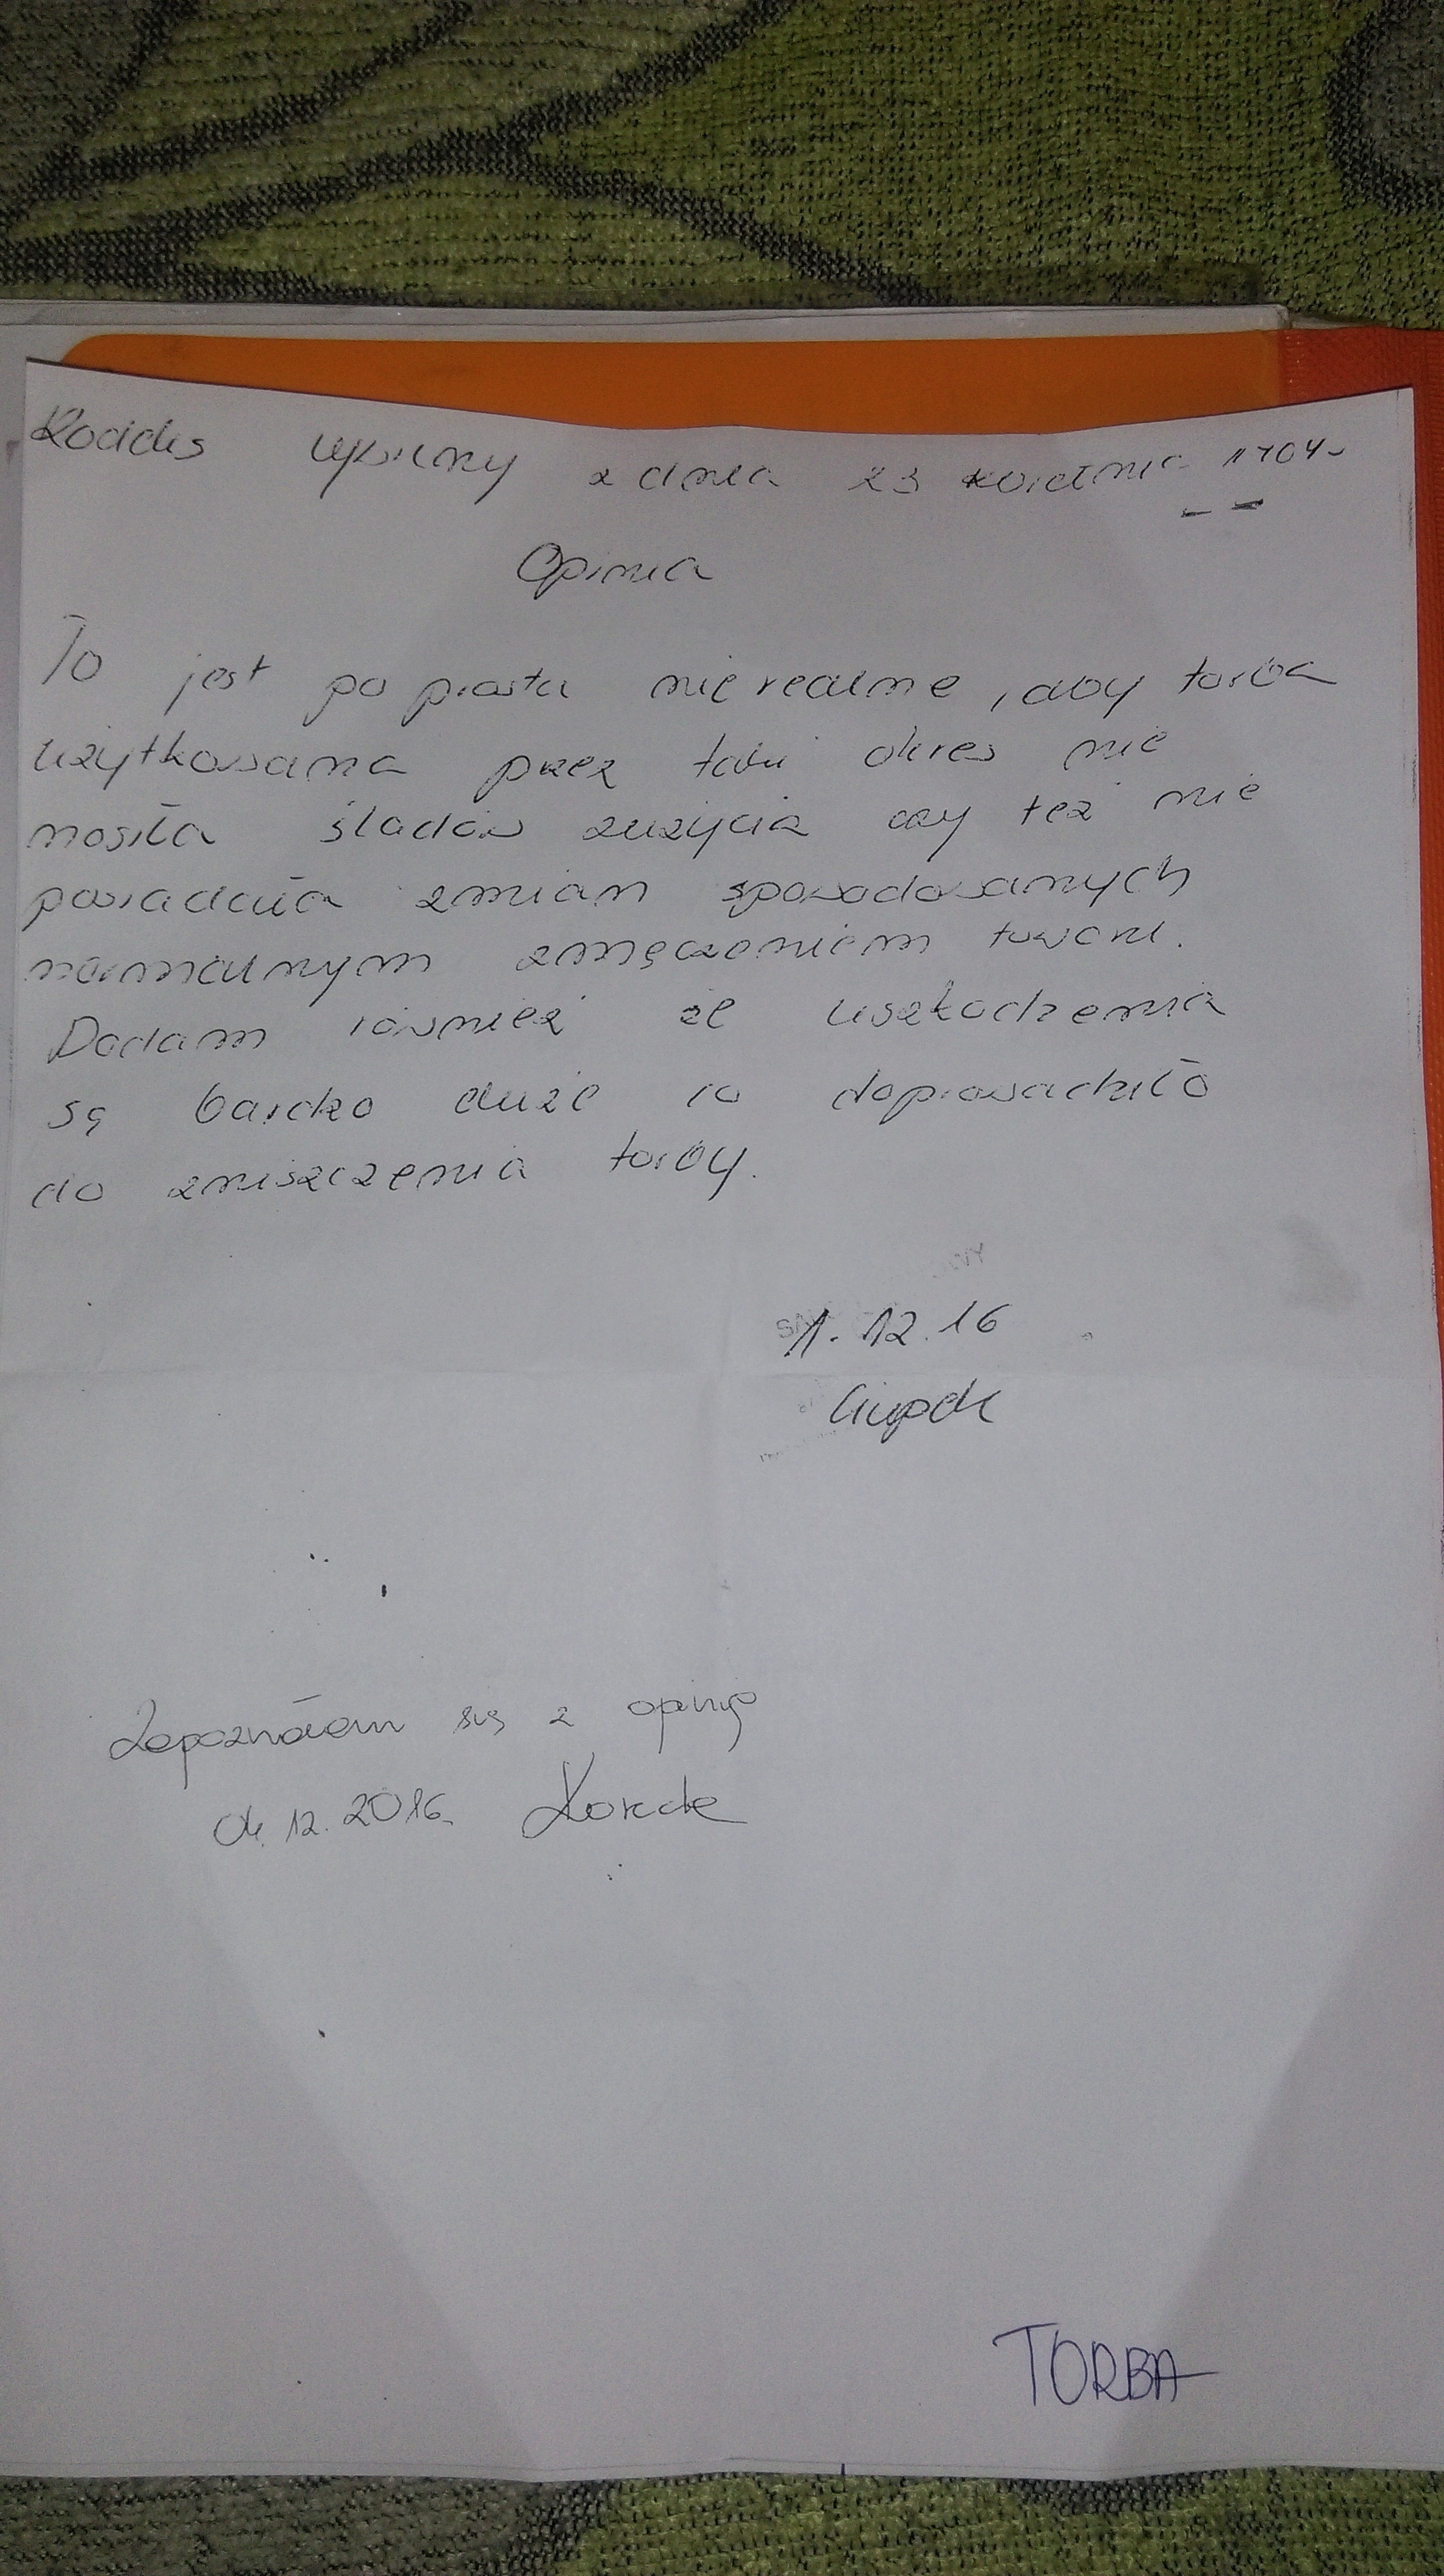 Kodeks cywilny z dnia 23 kwietnia
Opinia
To jest po prostu nierealne, aby torba
użytkowana przez taki okres nie
nosiła śladów zużycia czy też nie
posiadała zmian spowodowanych
normalnym zmęczeniem towaru.
Dodam również że uszkodzenia
są bardzo duże co doprowadziło
do zniszczenia torby.
1.12.16
Zapoznałam się z opinią
12.2016
TORBA